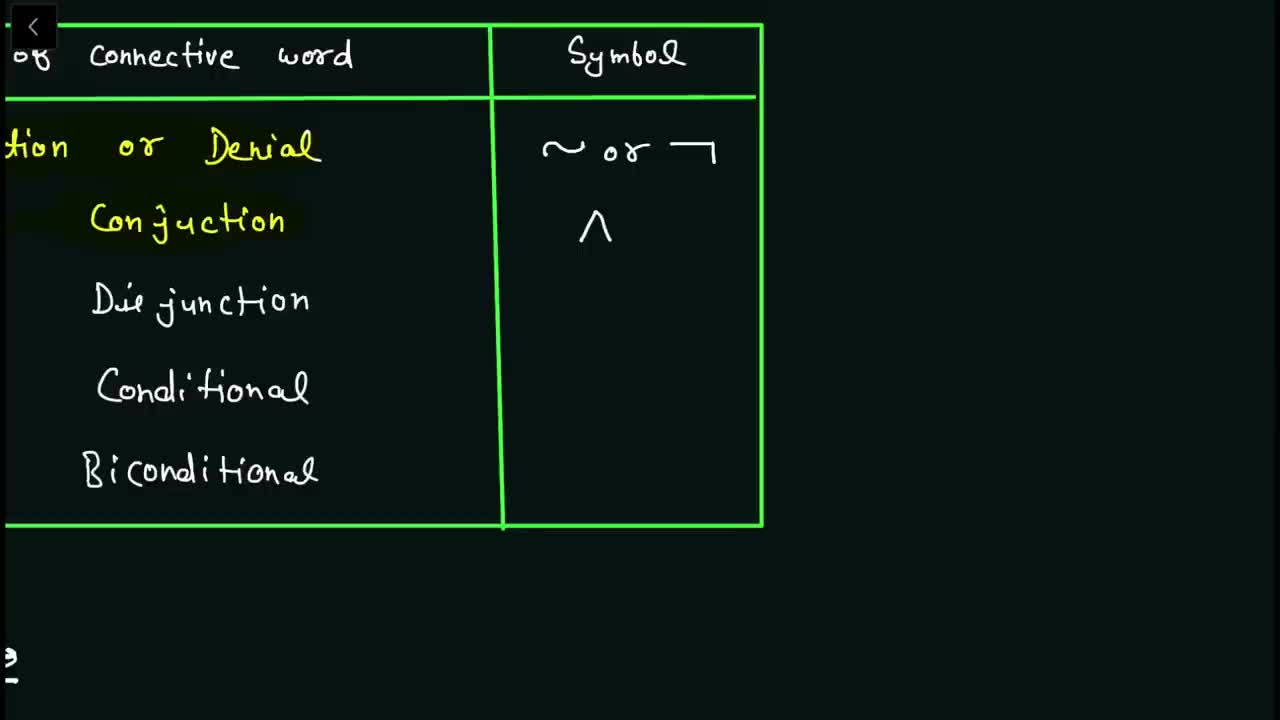 of connective word Symbol
tion or Denial ~ or ¬
Conjuction ∧
Disjunction
Conditional
Biconditional